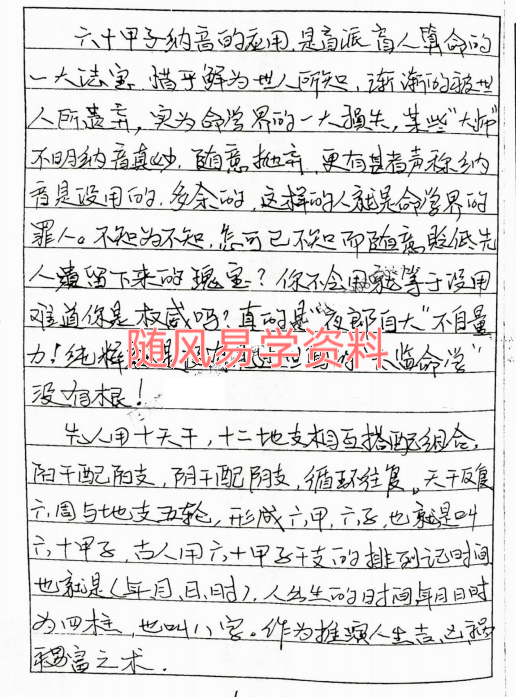 六十甲子纳音的应用,是盲派盲人算命的
一大法宝.惜乎鲜为世人所知,渐渐的被世
人所遗弃,实为命学界的一大损失,某些"大师"
不明纳音真妙,随意抛弃,更有甚者声称纳
音是没用的,多余的,这样的人就是命学界的
罪人。不知为不知,怎可己不知而随意贬低先
人遗留下来的瑰宝?你不会用就等于没用
难道你是权威吗?真的是"夜郎自大"不自量
力!纯粹 "太监命学"
随风易学资料
没有根!
先人用十天干,十二地支相互搭配组合,
阳干配阳支,阴干配阴支,循环往复。天干反复
六周与地支五轮,形成六甲,六子,也就是叫
六十甲子,古人用六十甲子干支的排列记时间
也就是(年月,日,时),人出生的时间年月日时
为四柱,也叫八字。作为推演人生吉,凶祸
福富之术.